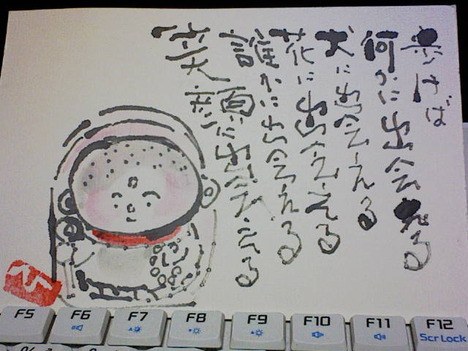 歩けば
何かに出会える
犬に出会える
花に出会える
誰かに出会える
笑顔に出会える
F5 F6 F7 F8 F9 F10 F11 F12
Scr Lock